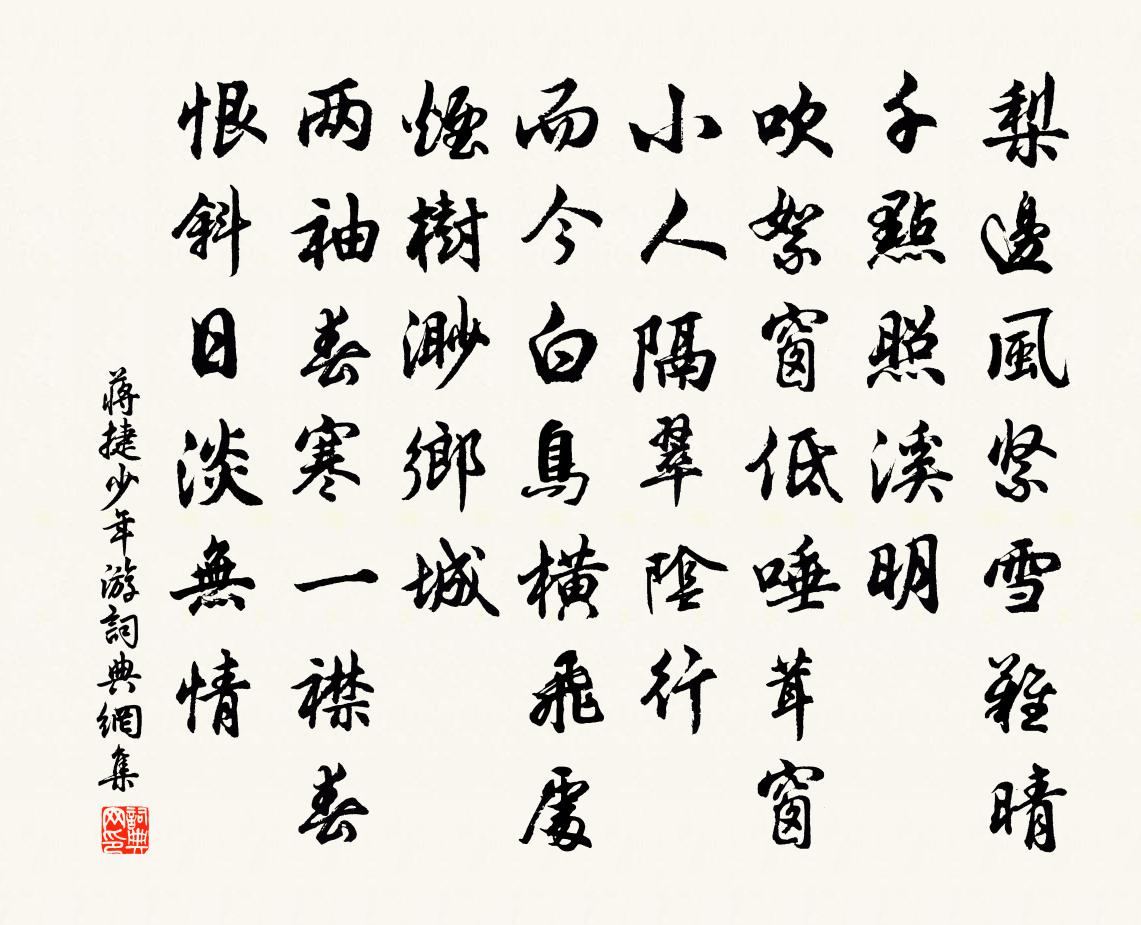 梨邊風緊雪難晴
千點照溪明
吹絮窗低唾茸窗
小人隔翠陰行
而今白鳥橫飛處
煙樹渺鄉城
两袖春寒一襟春
恨斜日淡無情
蔣捷少年游詞典網集
詞典网印